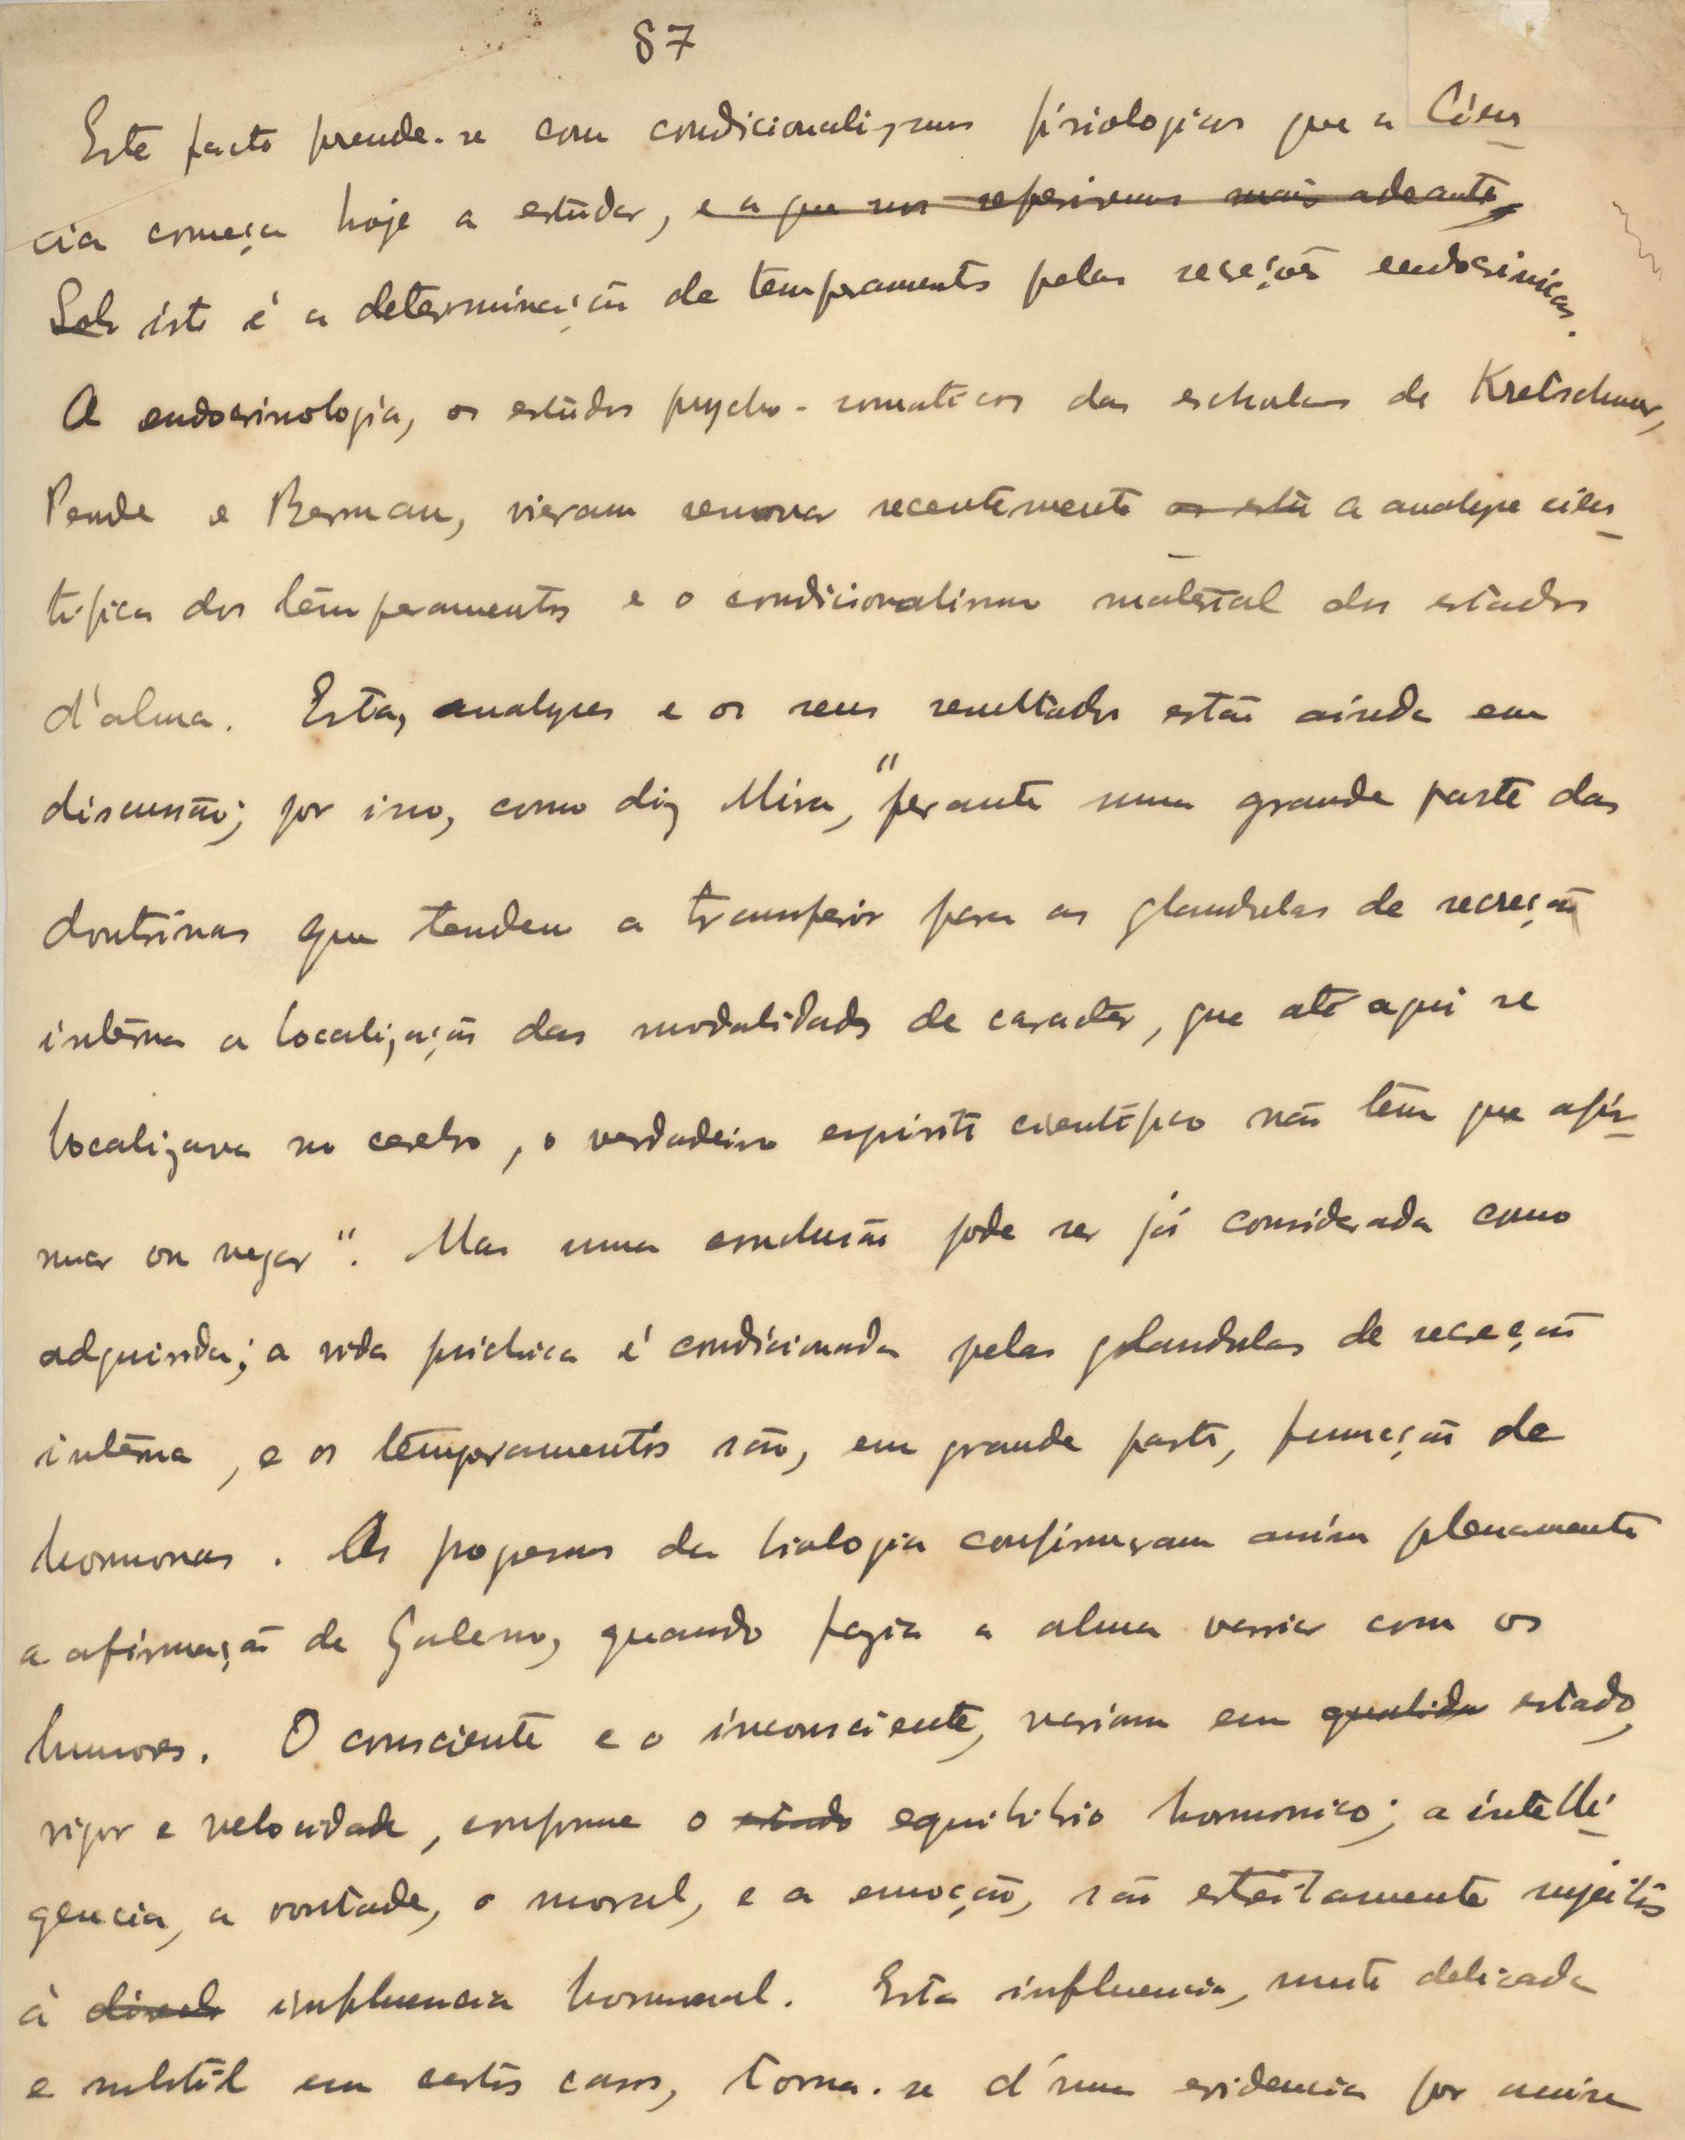 87
Este facto prende-se com condicionalismos fisiologicos que a Ciên-
cia começa hoje a estudar, e a que nos referiremos mais adeante,
isto é a determinação de temperamentos pelas secreções endocrinicas.
A endocrinologia, os estudos psycho-somaticos das escholas de Kretschmer,
Pende e Berman, vieram renovar recentemente os estu a analyse cien-
tifica dos temperamentos e o condicionalismo material dos estados
d'alma. Estas analyses e os seus resultados estão ainda em
discussão; por isso, como diz Mira, "perante uma grande parte das
doutrinas que tendem a transferir para as glandulas de secreção
interna a localização das modalidades de caracter, que até aqui se
localizava no cerebro, o verdadeiro espirito cientifico não tem que afir-
mar ou negar". Mas uma conclusão pode ser já considerada como
adquirida; a vida psichica é condicionada pelas glandulas de secreção
interna, e os temperamentos são, em grande parte, funcção de
hormonas. Os progressos da biologia confirmaram assim plenamente
a afirmação de Galeno, quando fazia a alma variar com os
humores. O consciente e o inconsciente, variam em qualida estado,
vigor e velocidade, conforme o estado equilibrio hormonico; a intelli-
gencia, a vontade, o moral, e a emoção, são estreitamente sujeitos
à influencia hormonal. Esta influencia, muito delicada
e subtil em certos casos, torna-se d'uma evidencia por assim